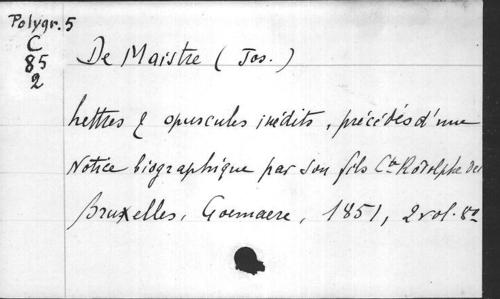 Polygr. 5
C
85
2
De Maistre (Jos.)
Lettres & opuscules inédits, précédés d'une
Notice biographique par son fils Cte Rodolphe de
Bruxelles, Goemaere, 1851, 2 vol. 8º